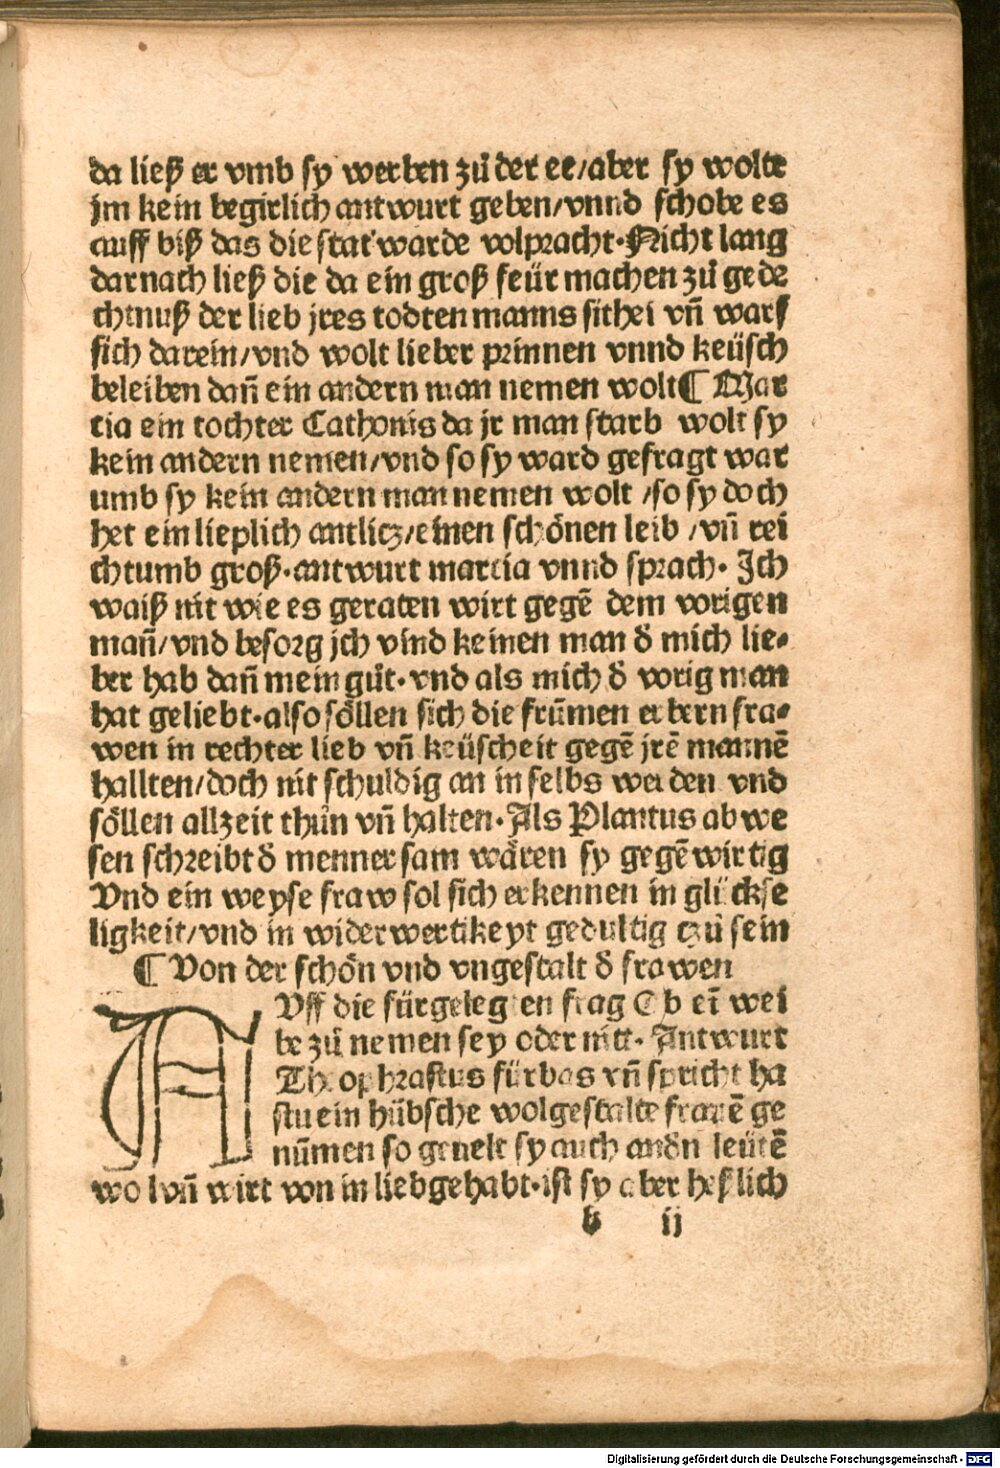 da ließ er vmb sy werben zů der ee/aber sy wolte
jm kein begirlich antwurt geben/vnnd schobe es
auff biß das die stat warde volpracht·Nicht lang
darnach ließ die da ein groß feür machen zů gede
chtnuß der lieb jres todten manns sithei vñ warf
sich darein/vnd wolt lieber prinnen vnnd keüsch
beleiben dañ ein andern man nemen wolt¶ Mar
tia ein tochter Cathonis da jr man starb wolt sy
kein andern nemen/vnd so sy ward gefragt war
umb sy kein andern man nemen wolt /so sy doch
het ein lieplich antlicz/einen schönen leib /vñ rei
chtumb groß·antwurt marcia vnnd sprach· Ich
waiß nit wie es geraten wirt gegē dem vorigen
mañ/vnd besorg jch vind keinen man d̄ mich lie-
ber hab dañ mein gůt·vnd als mich d̄ vorig man
hat geliebt·also söllen sich die frūmen erbern fra-
wen in rechter lieb vñ keüscheit gegē jrē mannē
hallten/doch nit schuldig an in selbs werden vnd
söllen allzeit thůn vñ halten·Als Plantus abwe
sen schreibt d̄ menner sam wären sy gegēwirtig
Vnd ein weyse fraw sol sich erkennen in glückse
ligkeit/vnd in widerwertikeyt gedultig czů sein
¶ Von der schön vnd vngestalt d̄ frawen
AVff die fürgelegten frag Ob eī wei
be zů nemen sey oder nitt· Antwurt
Theophrastus fürbas vñ spricht ha
stu ein hübsche wolgestalte frawē ge
nūmen so geuelt sy auch and̄n leütē
wol vñ wirt von in liebgehabt·ist sy aber heßlich
b ij
Digitalisierung gefördert durch die Deutsche Forschungsgemeinschaft - DFG